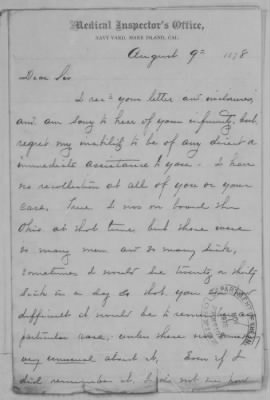 Medical Inspector's Office,
NAVY-YARD, MARE ISLAND, CAL.
August 9th 1878
Dear Sir
I recd your letter and inclosures
and am sorry to hear of your infirmity, but
regret my inability to be of any direct or
immediate assistance to you. I have
no recollection at all of you or your
case. True I was on board the
Ohio at that time but there were
so many men and so many sick,
sometimes I would see twenty or thirty
sick in a day so that you
difficult it would be to remember a
particular case, unless there was
any unusual about it. Even if I
did remember it, I do not